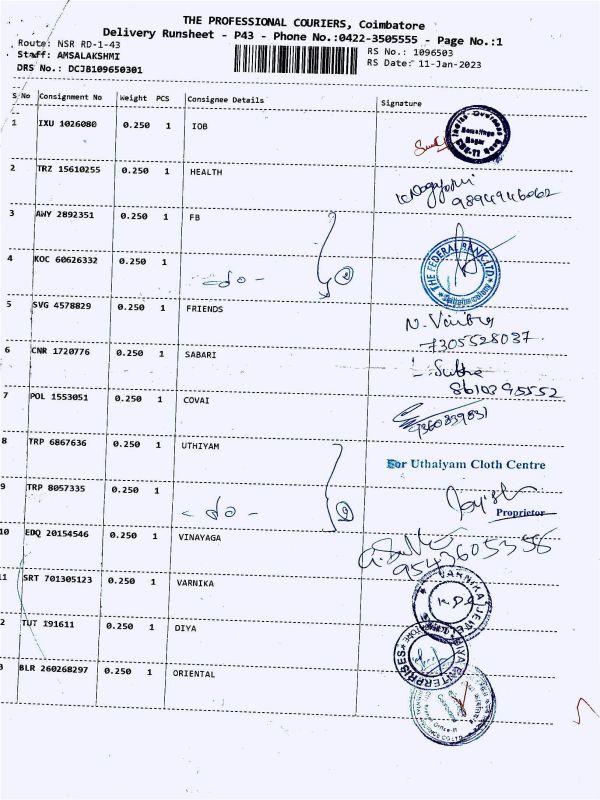 THE PROFESSIONAL COURIERS, Coimbatore
Delivery Runsheet - P43 - Phone No.:0422-3505555 - Page No.:1
Route: NSR RD-1-43
RS No.: 1096503
Staff: AMSALAKSHMI
RS Date: 11-Jan-2023
DRS No.: DCJB109650301
S No Consignment No Weight PCS Consignee Details Signature
1 IXU 1026080 0.250 1 IOB
2 TRZ 15610255 0.250 1 HEALTH
9894946062
3 AWY 2892351 0.250 1 FB
4 KOC 60626332 0.250 1 -do- 2 THE FEDERAL BANK LTD
5 SVG 4578829 0.250 1 FRIENDS
7305528037
6 CNR 1720776 0.250 1 SABARI
8610395552
7 POL 1553051 0.250 1 COVAI
8 TRP 6867636 0.250 1 UTHIYAM For Uthaiyam Cloth Centre
9 TRP 8057335 0.250 1 -do- 2
Proprietor
10 EDQ 20154546 0.250 1 VINAYAGA
11 SRT 701305123 0.250 1 VARNIKA
2 TUT 191611 0.250 1 DIYA
3 BLR 260268297 0.250 1 ORIENTAL